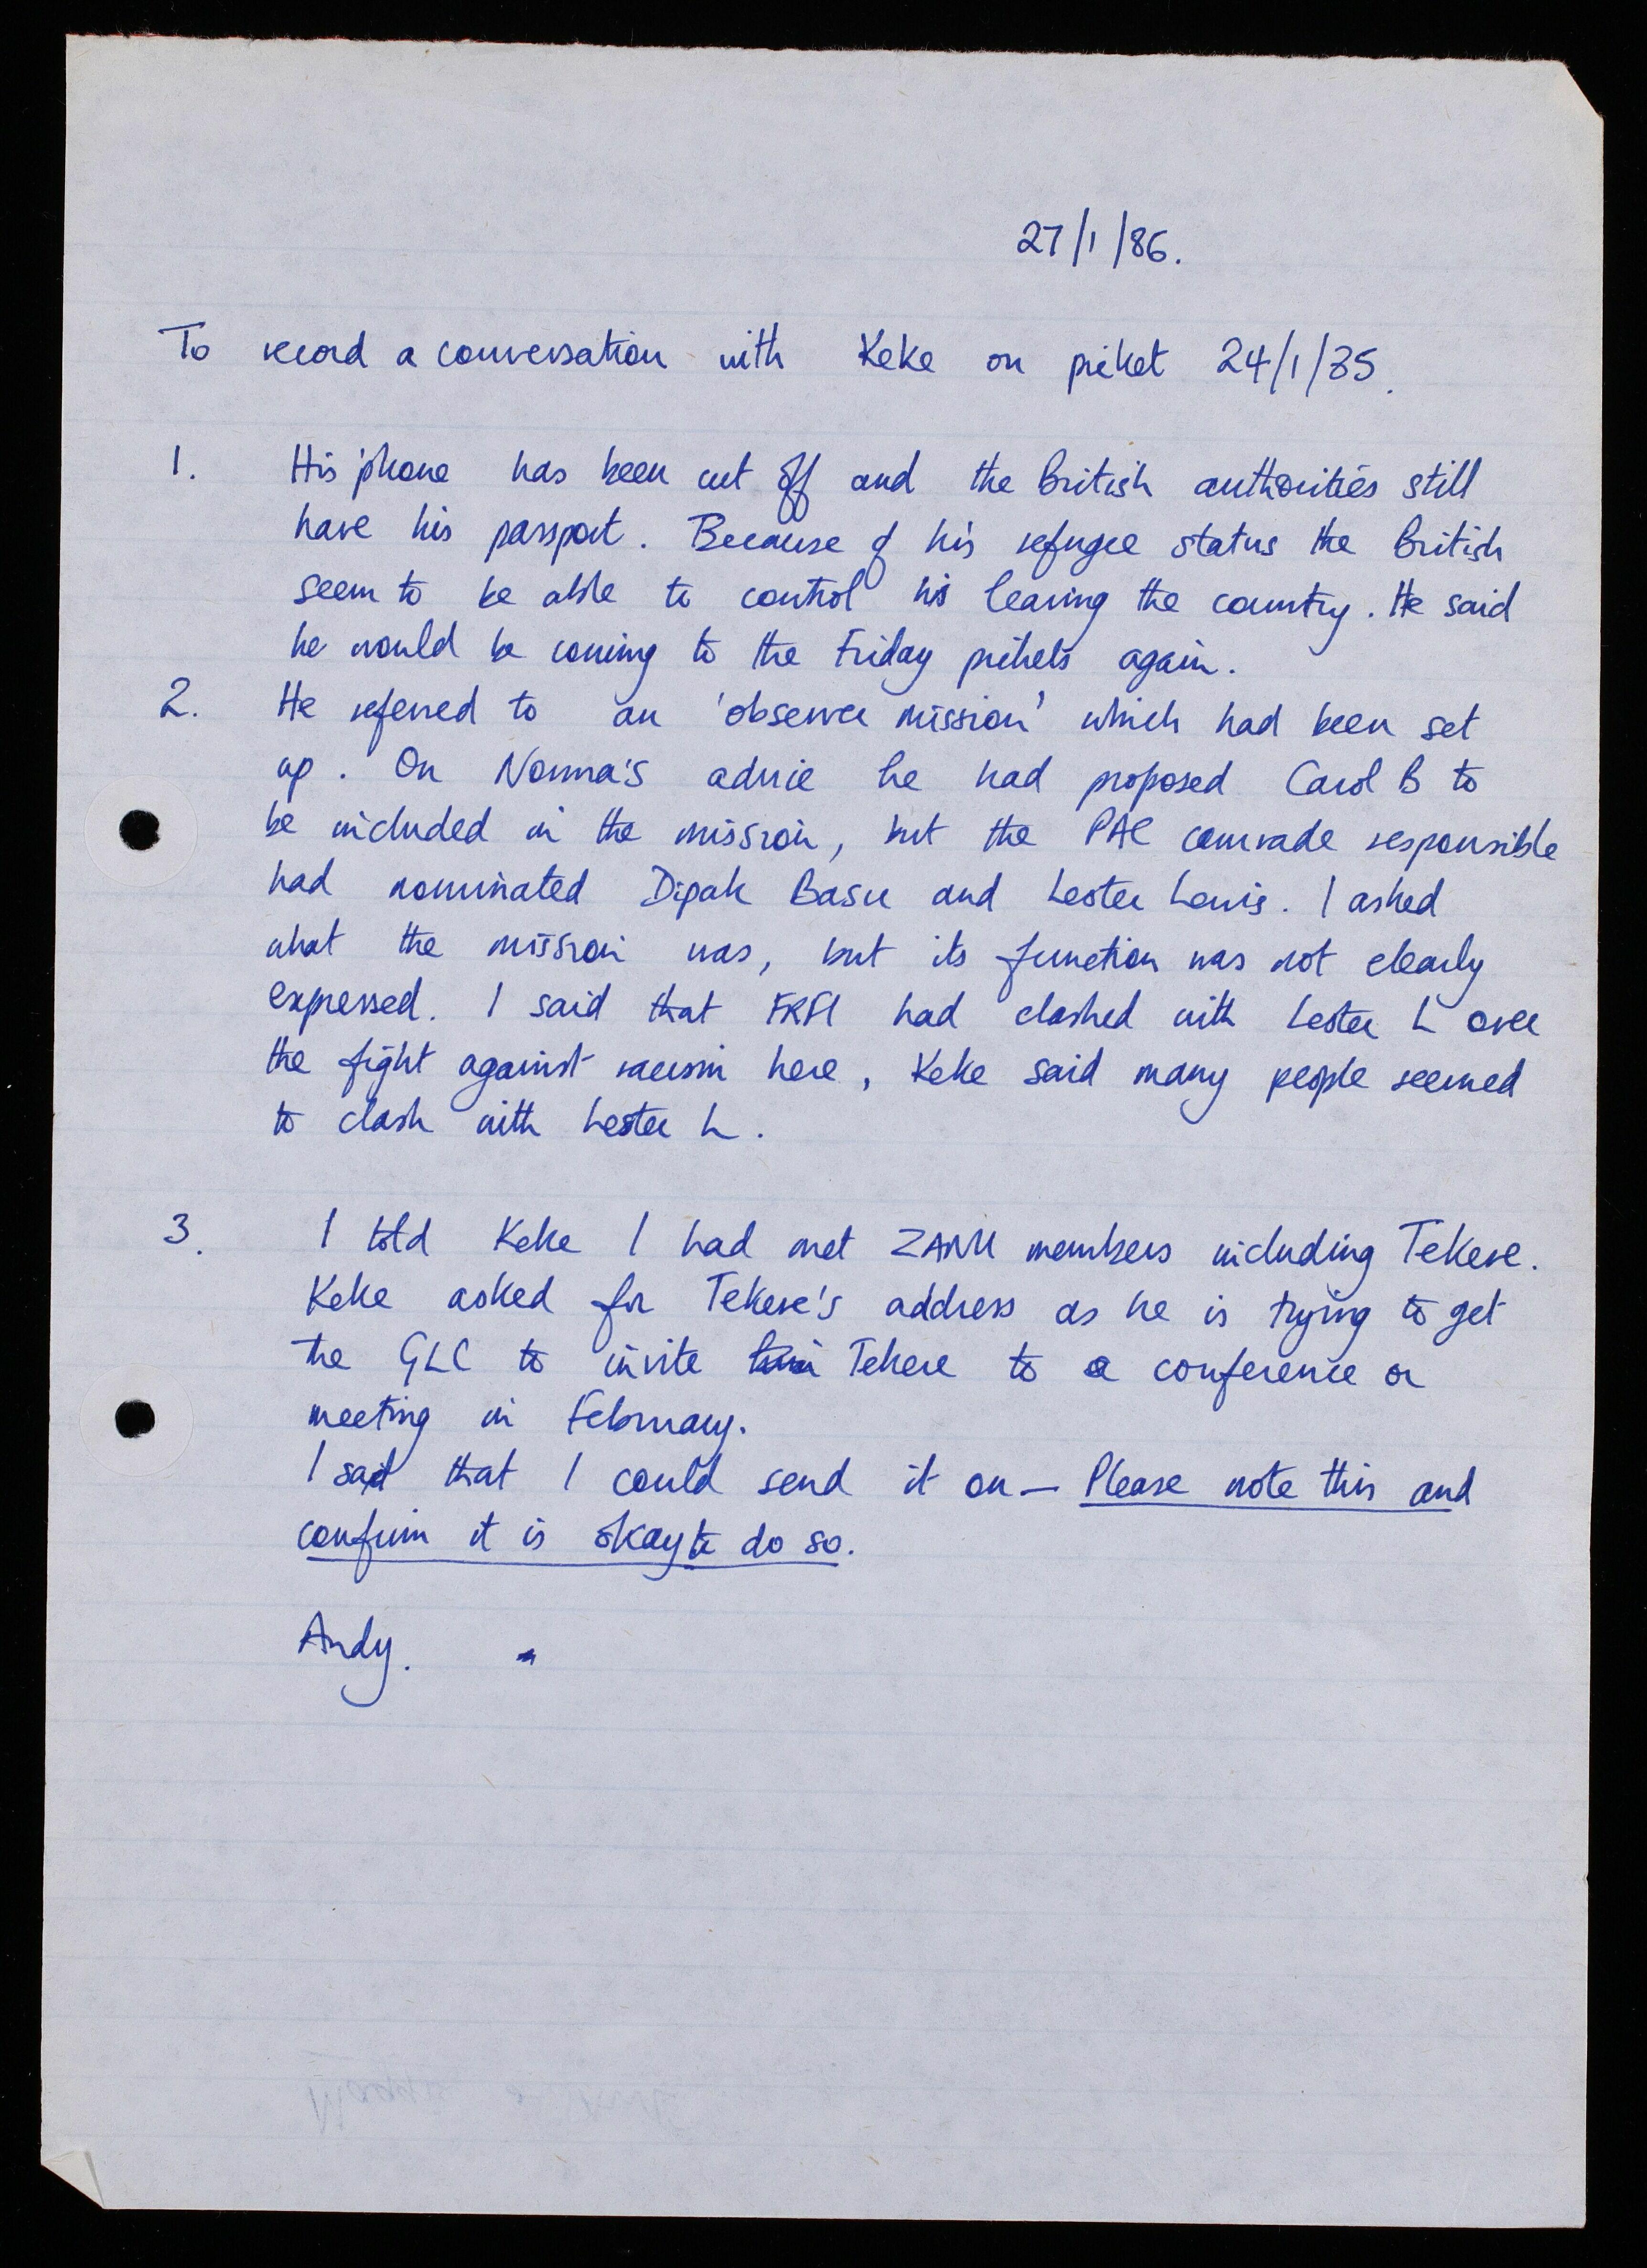 27/1/86.
To record a conversation with Keke on picket 24/1/85.
1. His 'phone has been cut off and the British authorities still
have his passport. Because of his refugee status the British
seem to be able to control his leaving the country. He said
he would be coming to the Friday pickets again.
2. He referred to an 'observer mission' which had been set
up. On Norma's advice he had proposed Carol B to
be included in the mission, but the PAC comrade responsible
had nominated Dipak Basu and Lester Lewis. I asked
what the mission was, but its function was not clearly
expressed. I said that FRFI had clashed with Lester L over
the fight against racism here, Keke said many people seemed
to clash with Lester L.
3. I told Keke I had met ZANU members including Tekere.
Keke asked for Tekere's address as he is trying to get
the GLC to invite him Tekere to a conference or
meeting in February.
I said that I could send it on — Please note this and
confirm it is okay to do so.
Andy.